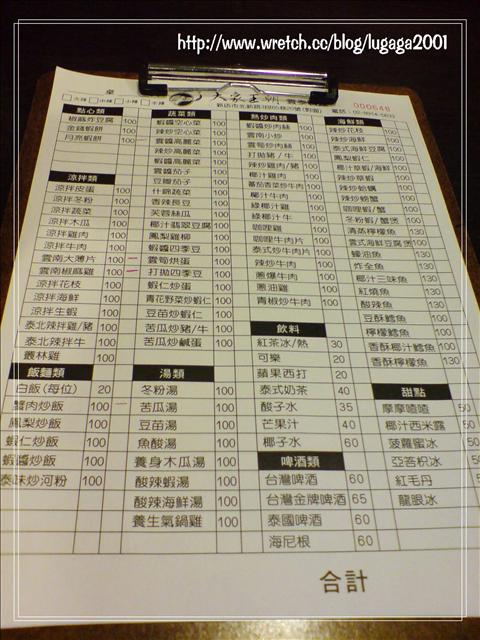 http://www.wretch.cc/blog/lugaga2001
000646
點心類
椒麻炸豆腐 100
金錢蝦餅 100
月亮蝦餅 100
涼拌類
涼拌皮蛋 100
涼拌冬粉 100
涼拌蔬菜 100
涼拌木瓜 100
涼拌雞肉 100
涼拌牛肉 100
雲南大薄片 100
雲南椒麻雞 100
涼拌花枝 100
涼拌海鮮 100
涼拌生蝦 100
泰北辣拌雞/豬 100
泰北辣拌牛 100
叢林雞 100
飯麵類
白飯(每位) 20
蟹肉炒飯 100
鳳梨炒飯 100
蝦仁炒飯 100
蝦醬炒飯 100
泰味炒河粉 100
蔬菜類
蝦醬空心菜 100
辣炒空心菜 100
雲醬高麗菜 100
辣炒高麗菜 100
蝦醬高麗菜 100
雲醬茄子 100
豆瓣茄子 100
什錦蔬菜 100
香辣長豆 100
芙蓉絲瓜 100
椰汁翡翠豆腐 100
鳳梨雞柳 100
蝦醬四季豆 100
雲筍烘蛋 100
打拋四季豆 100
蝦仁炒蛋 100
青花野菜炒蝦仁 100
豆苗炒蝦仁 100
苦瓜炒豬/牛 100
苦瓜炒鹹蛋 100
湯類
冬粉湯 100
苦瓜湯 100
豆苗湯 100
魚酸湯 100
養身木瓜湯 100
酸辣蝦湯 100
酸辣海鮮湯 100
養生氣鍋雞 100
熱炒肉類
蝦醬炒肉絲 100
雲南小炒 100
雲筍炒肉絲 100
打拋豬/牛 100
辣炒雞肉/豬 100
椰汁雞肉 100
蕃茄香菜炒牛肉 100
椰汁牛肉 100
綠椰汁雞 100
綠椰汁牛 100
咖哩雞 100
咖哩牛肉片 100
泰式炒牛肉片 100
辣炒牛肉 100
蔥爆牛肉 100
蔥油雞 100
青椒炒牛肉 100
飲料
紅茶冰/熱 30
可樂 20
蘋果西打 20
泰式奶茶 40
酸子水 35
芒果汁 40
椰子水 60
啤酒類
台灣啤酒 60
台灣金牌啤酒 65
泰國啤酒 60
海尼根 60
海鮮類
辣炒花枝 100
辣炒海鮮 100
泰式海鮮豆腐 100
鳳梨蝦仁 100
椰汁草蝦/海鮮 100
辣炒草蝦 100
辣炒蛤蠣 100
辣炒螃蟹 100
咖哩蝦/蟹 100
冬粉蝦/蟹煲 100
清蒸檸檬魚 130
雲式海鮮豆腐煲 100
蠔油魚 130
炸全魚 130
椰汁三味魚 130
紅燒魚 130
酸辣魚 130
豆酥鱈魚 130
檸檬鱈魚 130
香酥椰汁鱈魚 130
香酥檸檬魚 130
甜點
摩摩喳喳 50
椰汁西米露 50
菠蘿蜜冰 50
亞荅枳冰 50
紅毛丹 50
龍眼冰 50
合計